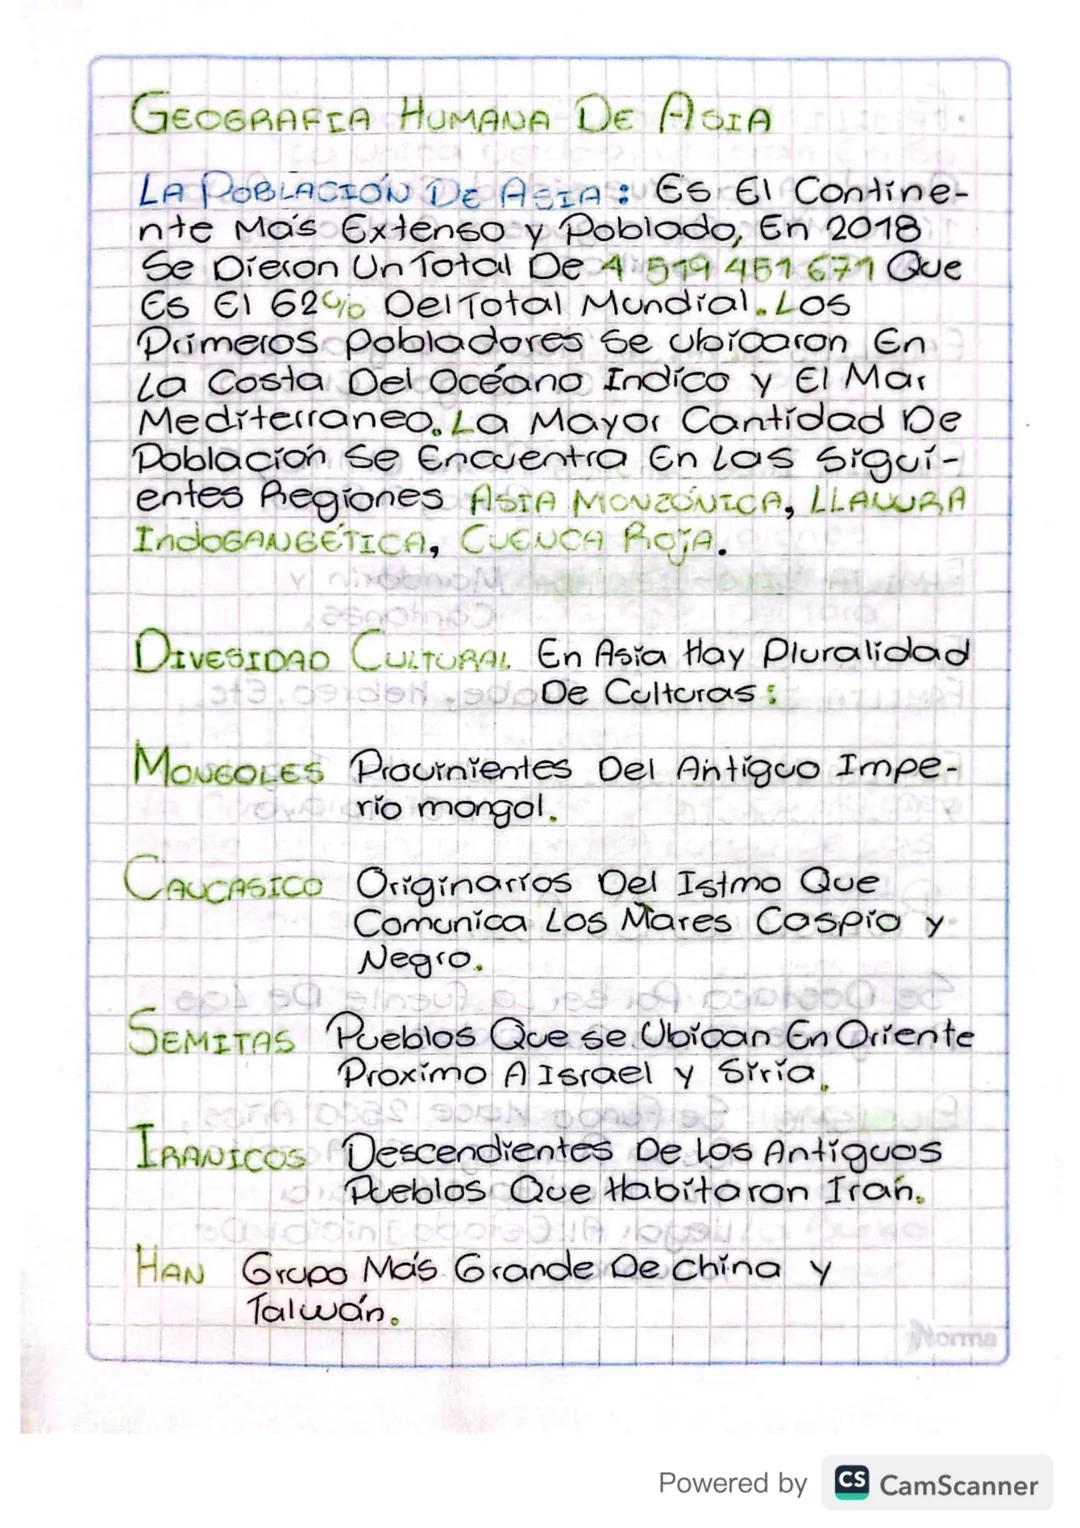 GEOGRAFIA HUMANA DE ASIA
LA POBLACIÓN DE ASIA: Es El Contine-
nte Más Extenso y Poblado, En 2018
Se Dieron Un Total De 4 519 451 671 Que
Es El 62% Del Total Mundial. Los
Primeros Pobladores Se ubicaron En
La Costa Del Océano Indico y El Mar
Mediterraneo. La Mayor Cantidad De
Población Se Encuentra En Las Sigui-
entes Regiones ASIA MONZÓNICA, LLANURA
INDOGANGÉTICA, CUENCA ROJA.
DIVESIDAD CULTURAL En Asia Hay Pluralidad
De Culturas:
MONGOLES Provinientes Del Antiguo Impe-
rio mongol.
CAUCASICO Originarios Del Istmo Que
Comunica Los Mares Caspio y
Negro.
SEMITAS Pueblos Que se Ubican En Oriente
Proximo A Israel y Siria.
IRANICOS Descendientes De Los Antiguos
Pueblos Que Habitaron Irán.
HAN Grupo Más Grande De China y
Taiwán.
Norma
Powered by CS CamScanner